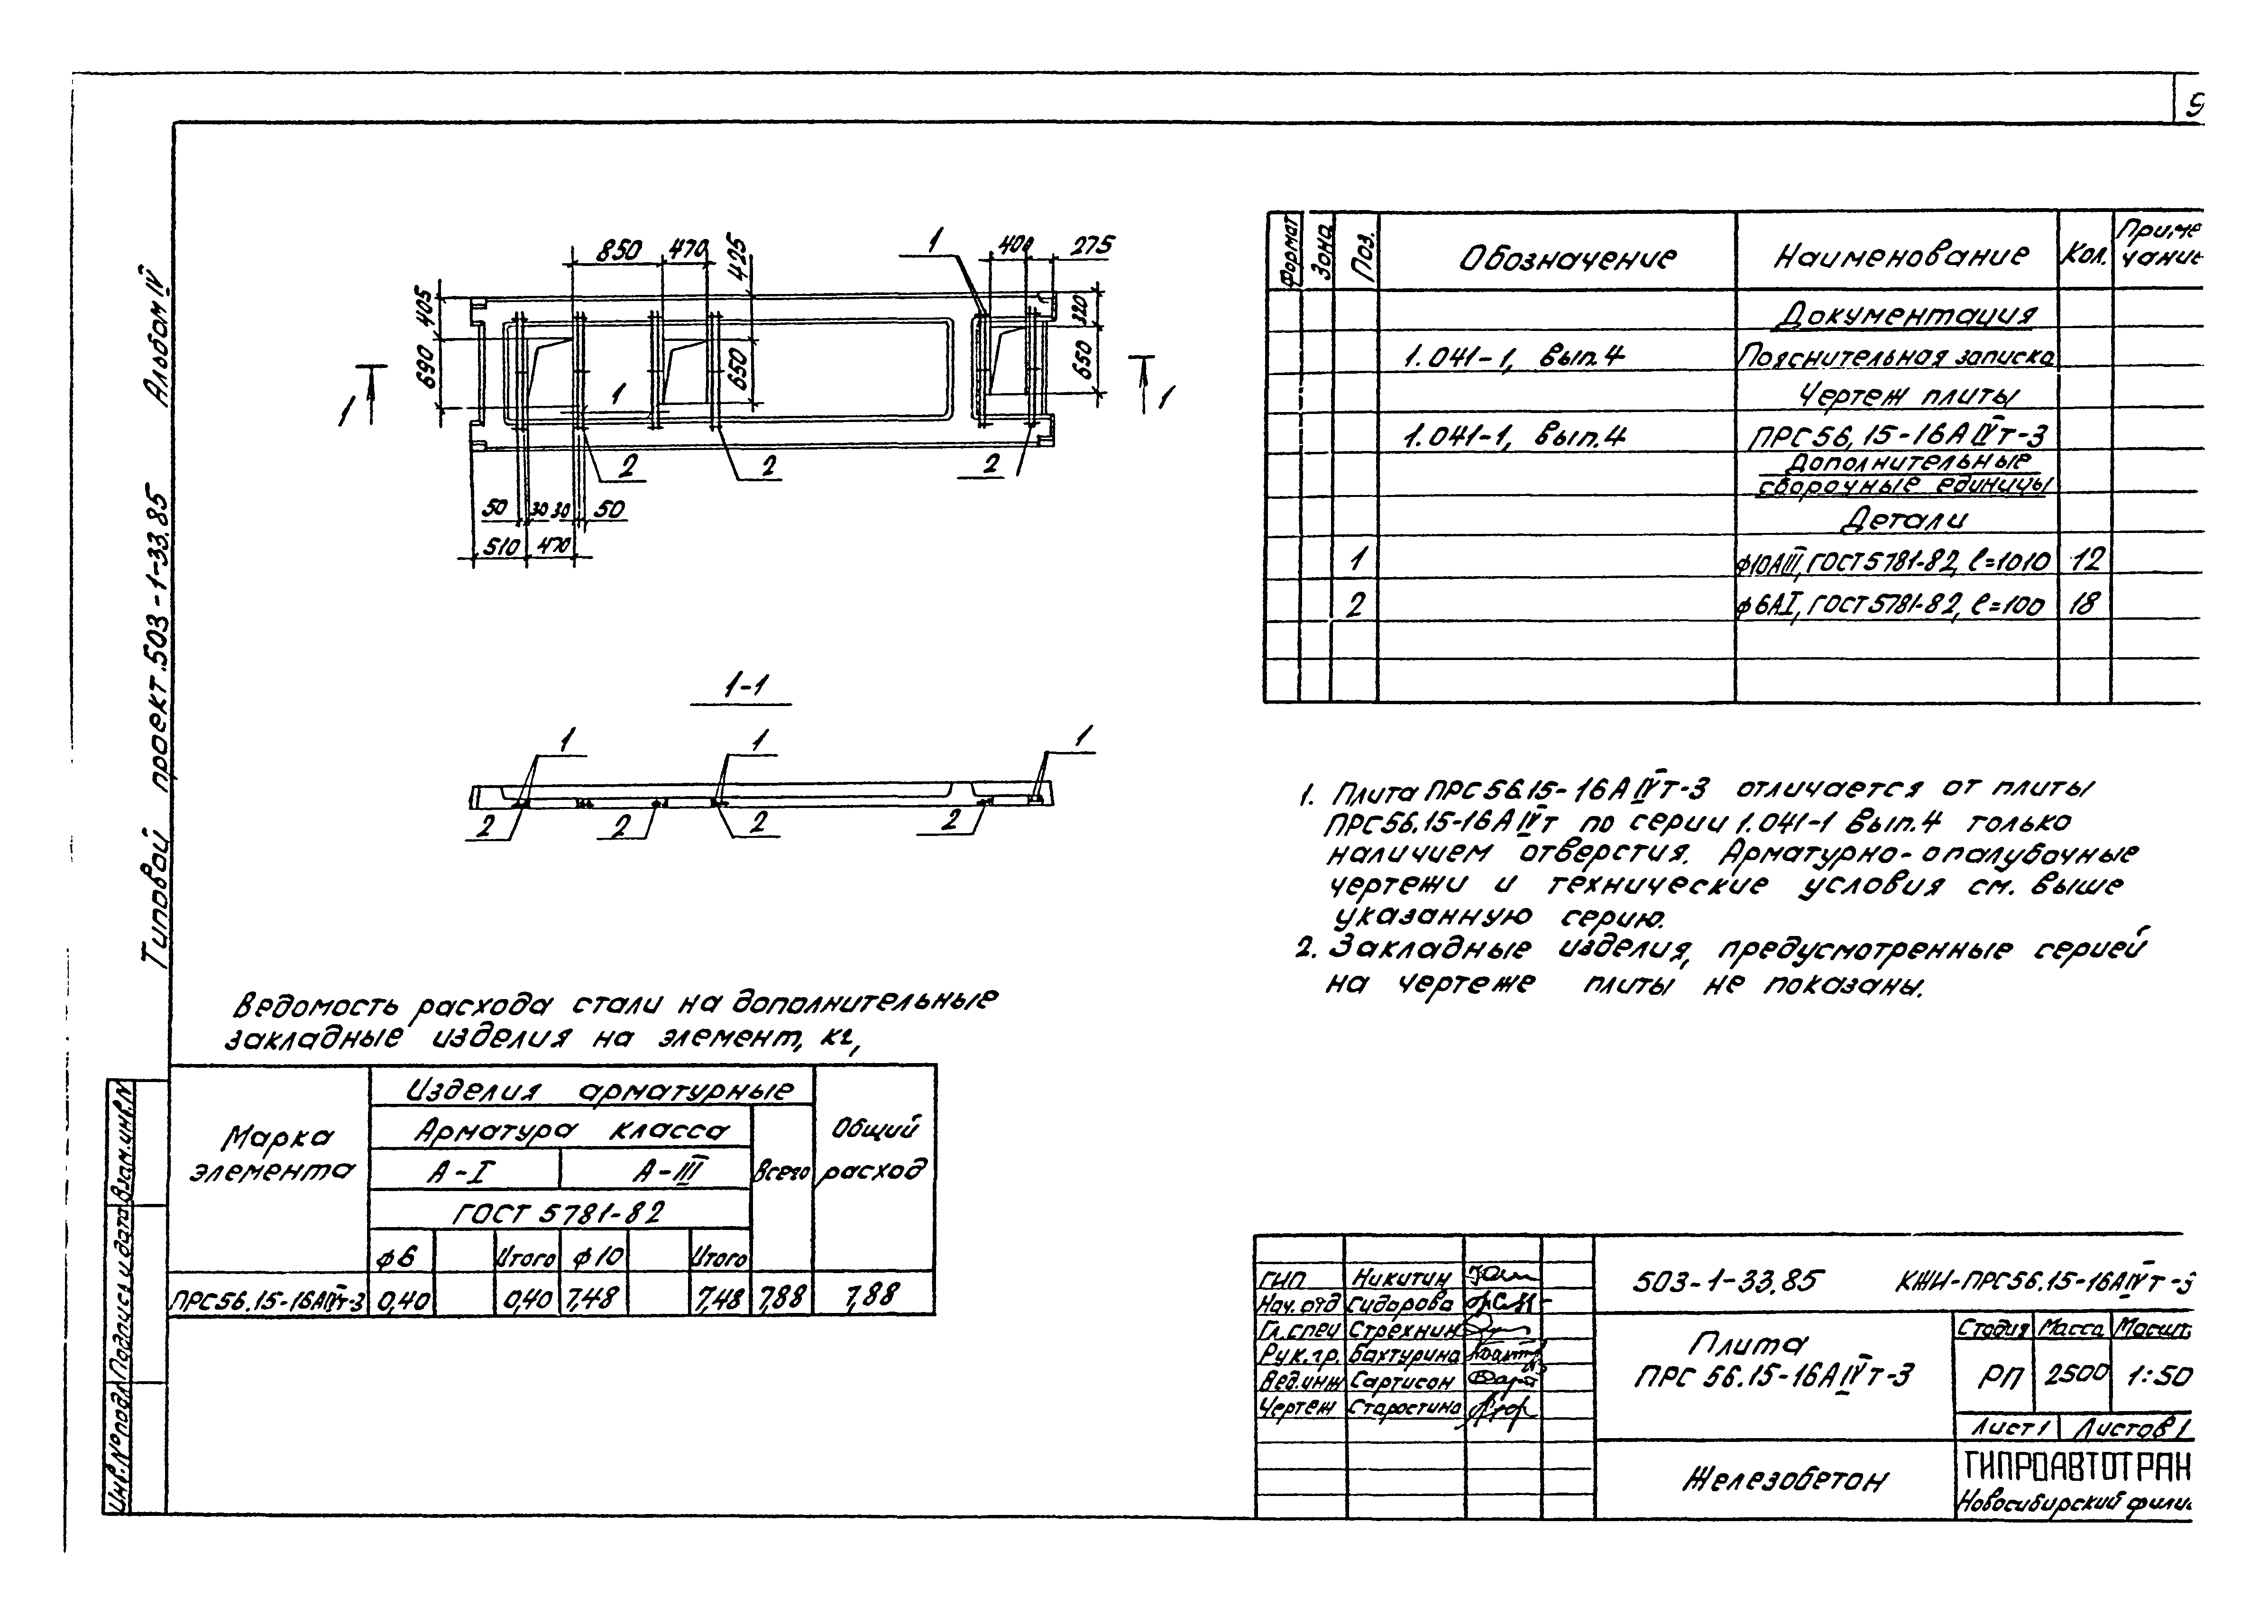 9
Типовой проект 503-1-33.85 Альбом IV
850 470 425 1 400 275
405 690 320 650 650
1 1 1
2 2 2
50 30 30 50
510 470
1-1
1 1 1
2 2 2 2
Формат Зона Поз. Обозначение Наименование Кол. Приме
чание
Документация
1.041-1, вып.4 Пояснительная записка
Чертеж плиты
1.041-1, вып.4 ПРС56,15-16АIVт-3
Дополнительные
сборочные единицы
Детали
1 ф10АIII, ГОСТ 5781-82, ℓ=1010 12
2 ф6АI, ГОСТ 5781-82, ℓ=100 18
1. Плита ПРС56.15-16АIVт-3 отличается от плиты
ПРС56.15-16АIVт по серии 1.041-1 вып.4 только
наличием отверстия. Арматурно-опалубочные
чертежи и технические условия см. выше
указанную серию.
2. Закладные изделия, предусмотренные серией
на чертеже плиты не показаны.
Ведомость расхода стали на дополнительные
закладные изделия на элемент, кг,
Марка
элемента
Изделия арматурные
Арматура класса
А-I А-III
ГОСТ 5781-82
ф6 Итого ф10 Итого
Всего
Общий
расход
ПРС56.15-16АIVт-3 0,40 0,40 7,48 7,48 7,88 7,88
Инв.№ подл. Подпись и дата Взам.инв.N
ГИП Никитин
Нач.отд Сидорова
Гл.спец Стрехнин
Рук.гр. Бахтурина
Вед.инж Сартисон
Чертеж Старостина
503-1-33.85 КЖИ-ПРС56.15-16АIVт-3
Плита
ПРС 56.15-16АIVт-3
Стадия Масса Масшт.
РП 2500 1:50
Лист 1 Листов 1
Железобетон
ГИПРОАВТОТРАН
Новосибирский фили